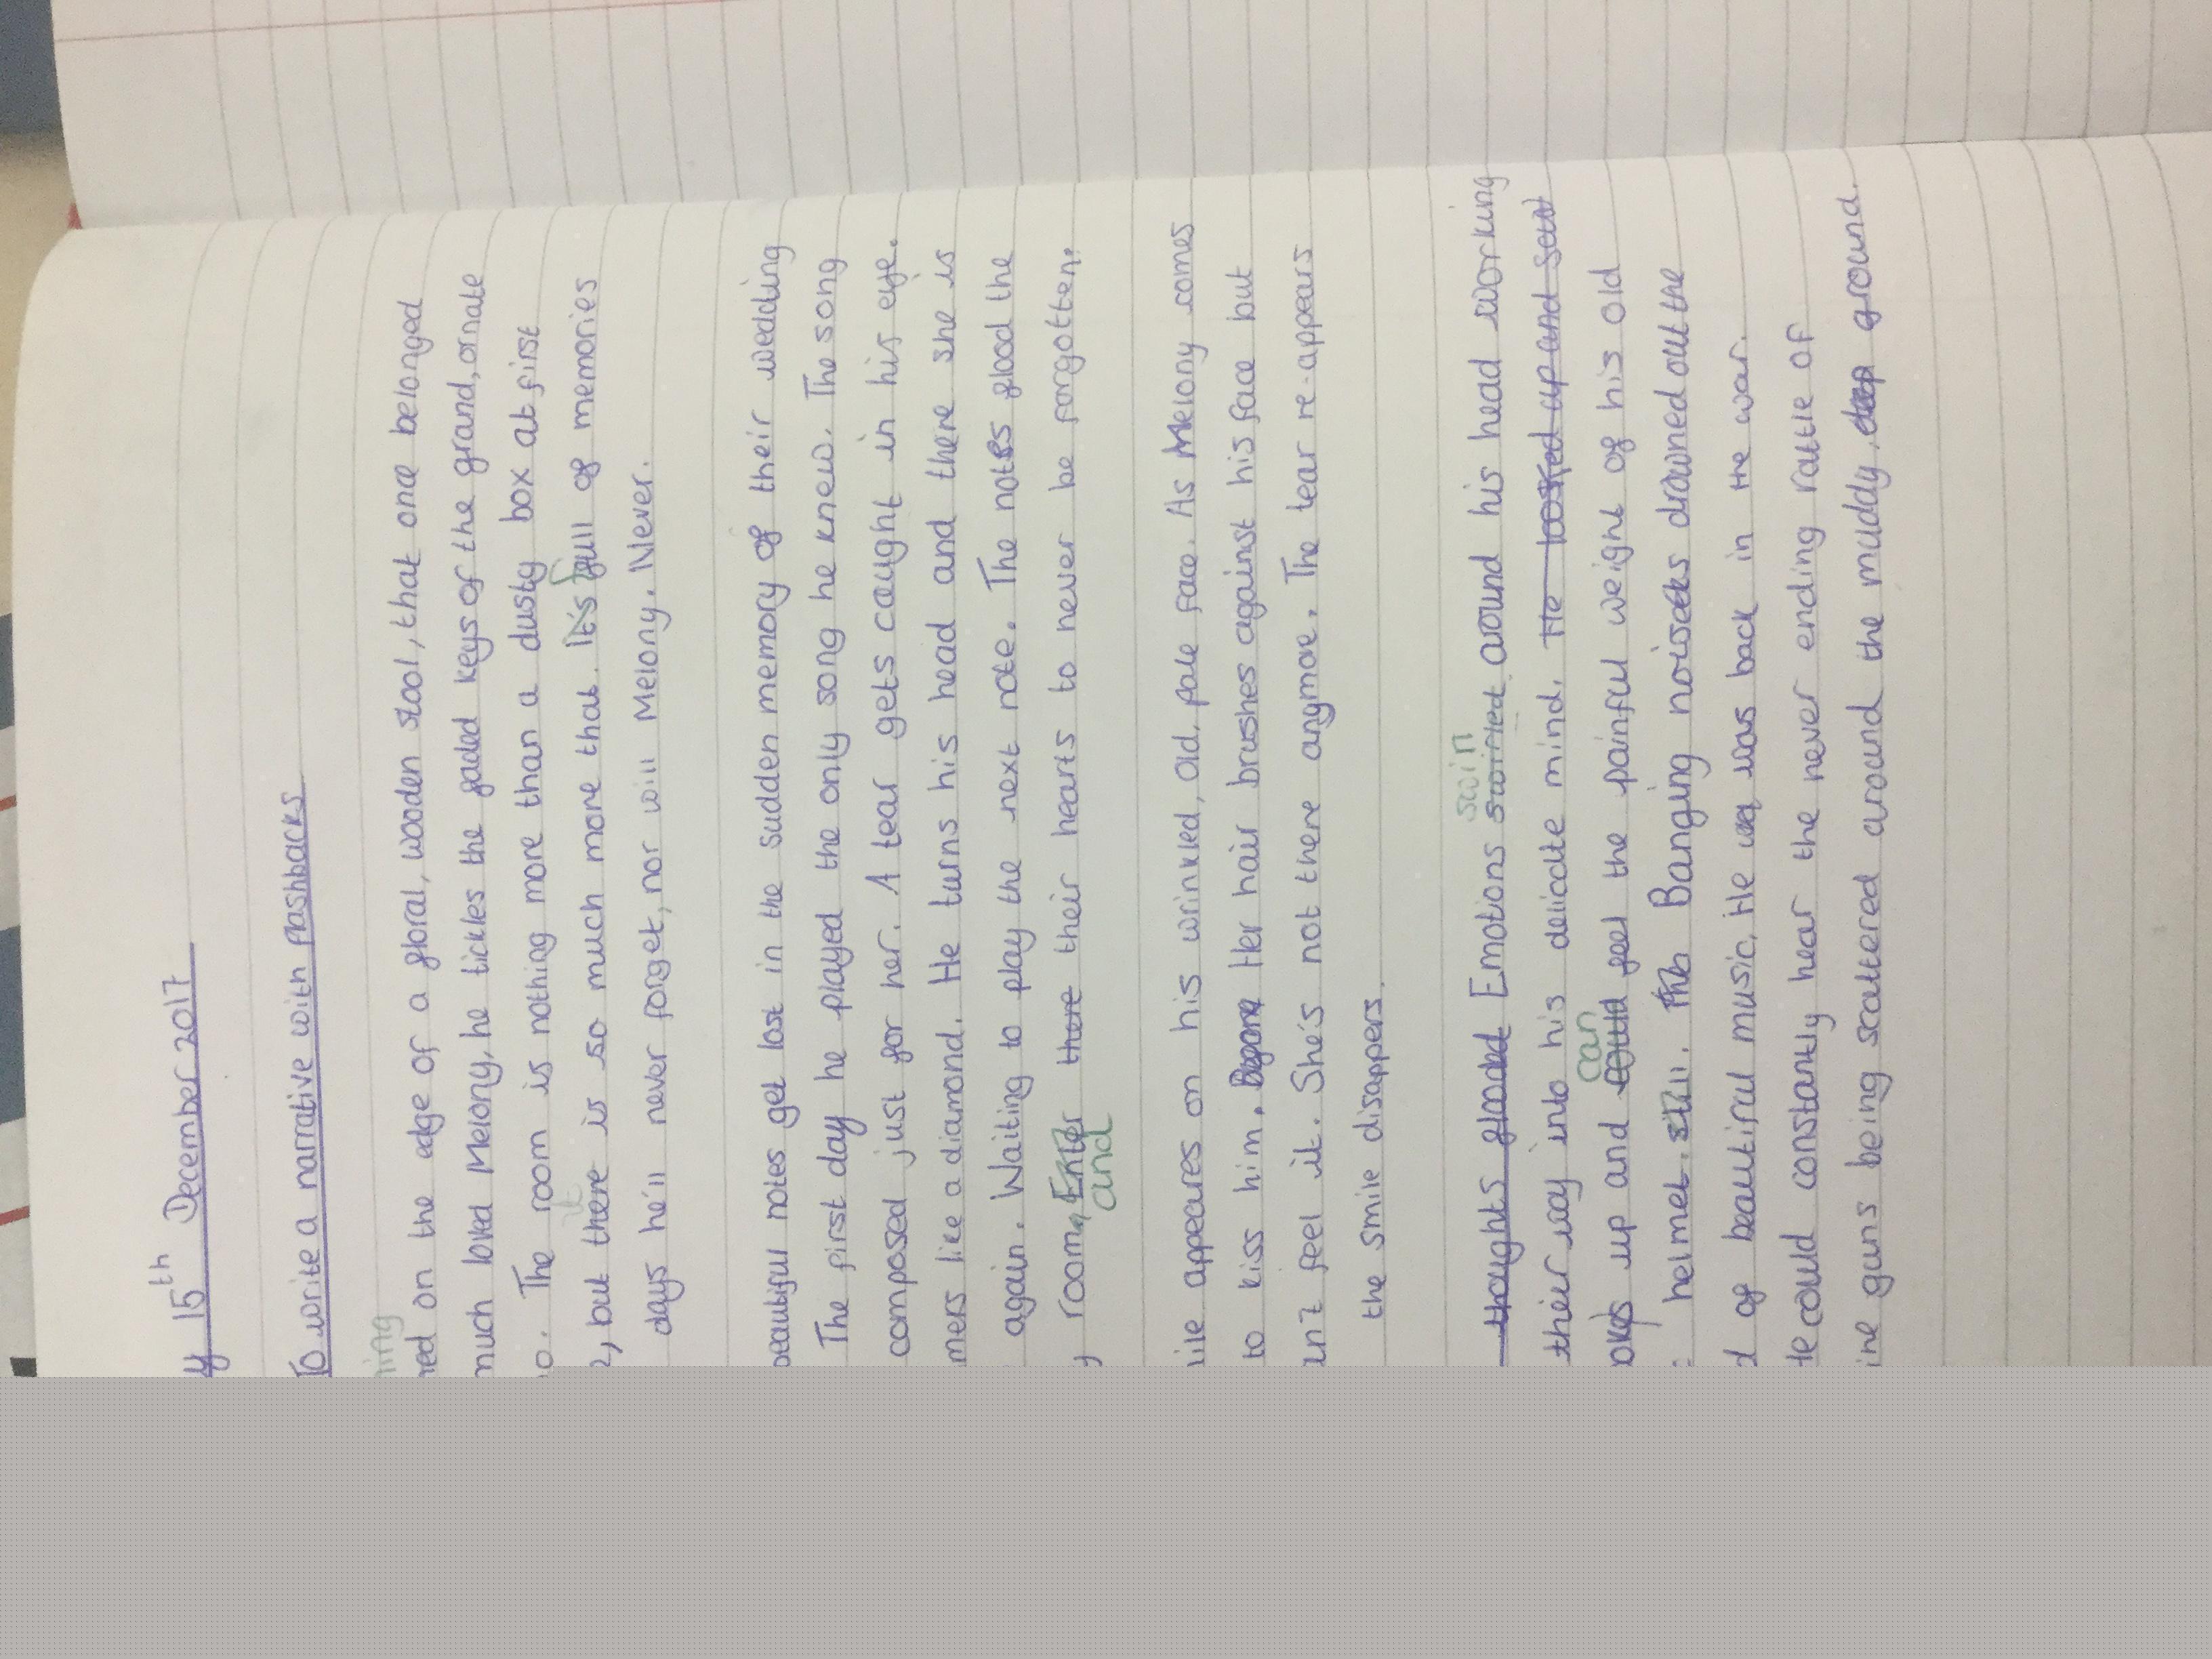 y 15th December 2017
To write a narrative with flashbacks
ning
ned on the edge of a floral, wooden stool, that one belonged
much loved Melony, he tickles the faded keys of the grand, ornate
o. The room is nothing more than a dusty box at first
e, but there is so much more that. It's full of memories
it
days he'll never forget, nor will Melony. Never.
beautiful notes get lost in the sudden memory of their wedding
The first day he played the only song he knew. The song
composed just for her. A tear gets caught in his eye.
mers like a diamond. He turns his head and there she is
again. Waiting to play the next note. The notes flood the
y room, Enter there their hearts to never be forgotten.
and
ile appears on his wrinkled, old, pale face. As Melony comes
to kiss him. Before Her hair brushes against his face but
n't feel it. She's not there anymore. The tear re-appears
the smile disappers.
swirl
thoughts flooded Emotions swirled around his head working
their way into his delicate mind. He looked up and saw
can
oks up and could feel the painful weight of his old
helmet still. The Banging noises drowned out the
d of beautiful music. He was was back in the war.
He could constantly hear the never ending rattle of
ine guns being scattered around the muddy deep ground.